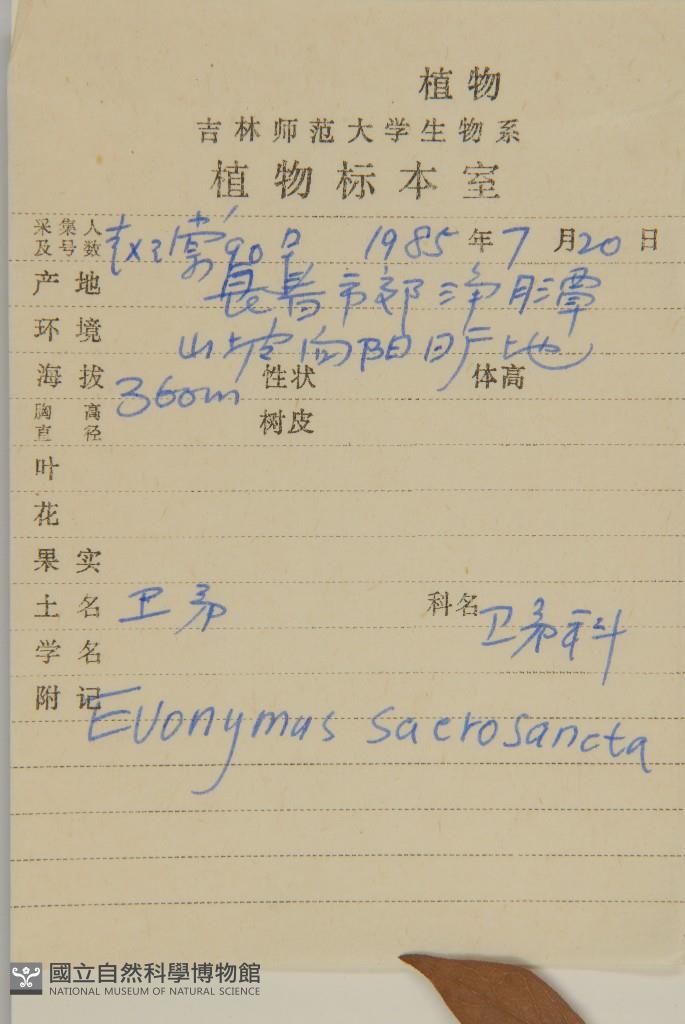 植物
吉林师范大学生物系
植物标本室
采集人及号数 90号 1985年7月20日
产地 長春市郊净月潭
环境 山坡向阳
海拔 360m 性状 体高
胸高直径 树皮
叶
花
果实
土名 卫矛 科名 卫矛科
学名
附记 Evonymus sacrosancta
國立自然科學博物館
NATIONAL MUSEUM OF NATURAL SCIENCE